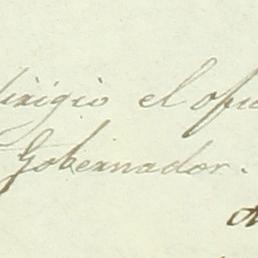 dirigio el ofi
Gobernador.